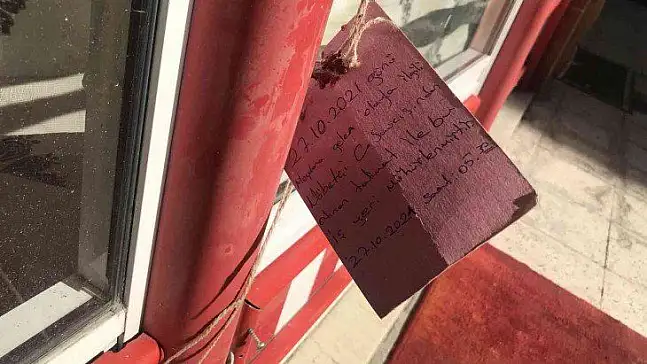 27.10.2021 günü
meydana gelen olayla ilgili
Nöbetçi C. Savcısından
alınan talimat ile bu
iş yeri mühürlenmiştir.
27.10.2021 Saat: 05.